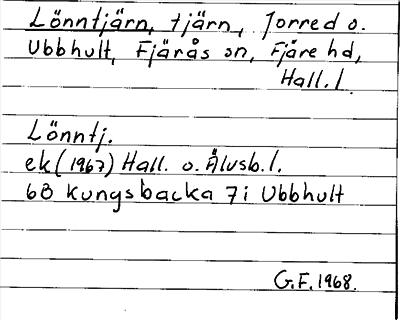 Lönntjärn, tjärn, Torred o.
Ubbhult, Fjärås sn, Fjäre hd,
Hall. l.
Lönntj.
ek (1967) Hall. o. Älvsb. l.
6B Kungsbacka 7i Ubbhult
G.F. 1968.